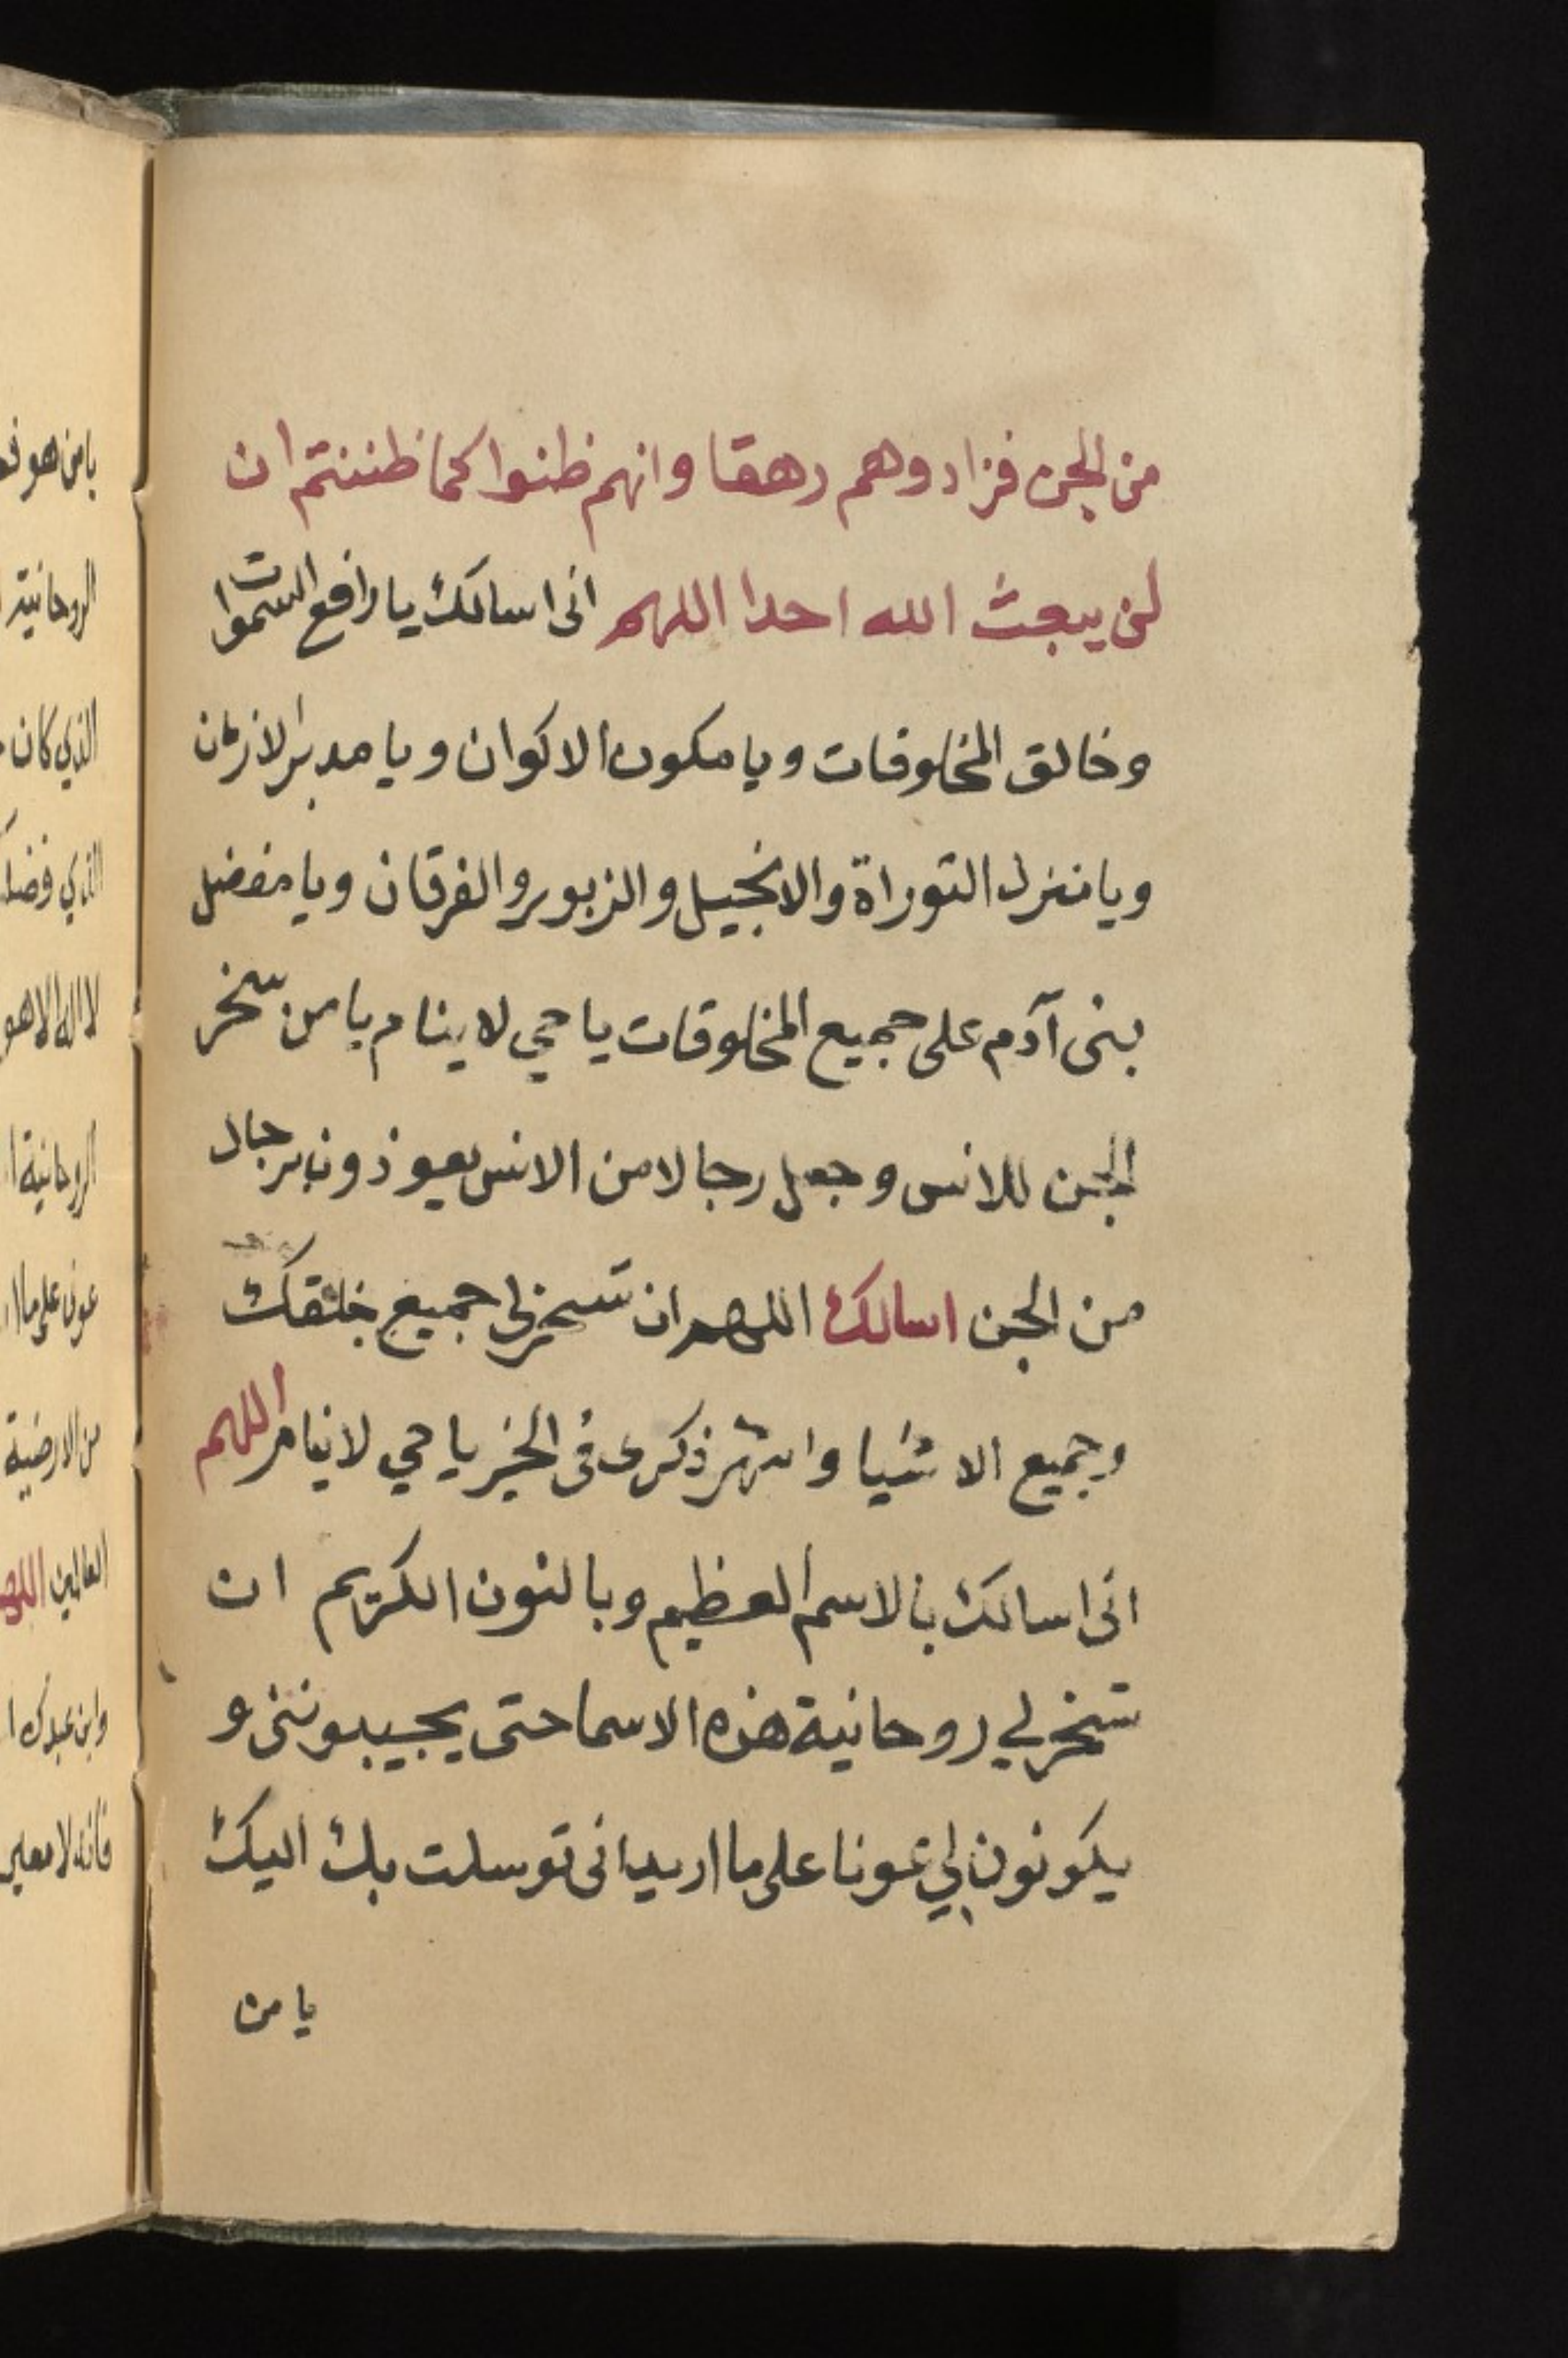 من الجن فزادوهم رهقا وانهم ظنوا كما ظننتم ان
لن يبعث الله احدا اللهم انى اسالك يا رافع السموات
وخالق المخلوقات ويا مكون الاكوان ويا مدبر الازمان
ويا منزل التوراة والانجيل والزبور والفرقان ويا مفضل
بنى آدم على جميع المخلوقات يا حي لا ينام يا من سخر
الجن للانس وجعل رجالا من الانس يعوذون برجال
من الجن اسالك اللهم ان تسخر لى جميع خلقك
وجميع الاشيا واشهر ذكرى فى الخير يا حي لا ينام اللهم
انى اسالك بالاسم العظيم وبالنون الكريم ان
تسخر لي روحانية هذه الاسما حتى يجيبوننى و
يكونون لي عونا على ما اريد انى توسلت بك اليك
يا من
يا من هو
الروحانية
الذي كان
الذي
لا اله الا هو
الروحانية
عونى على ما
من الارضية
العالمين
وابن عبدك
فانه لا معين